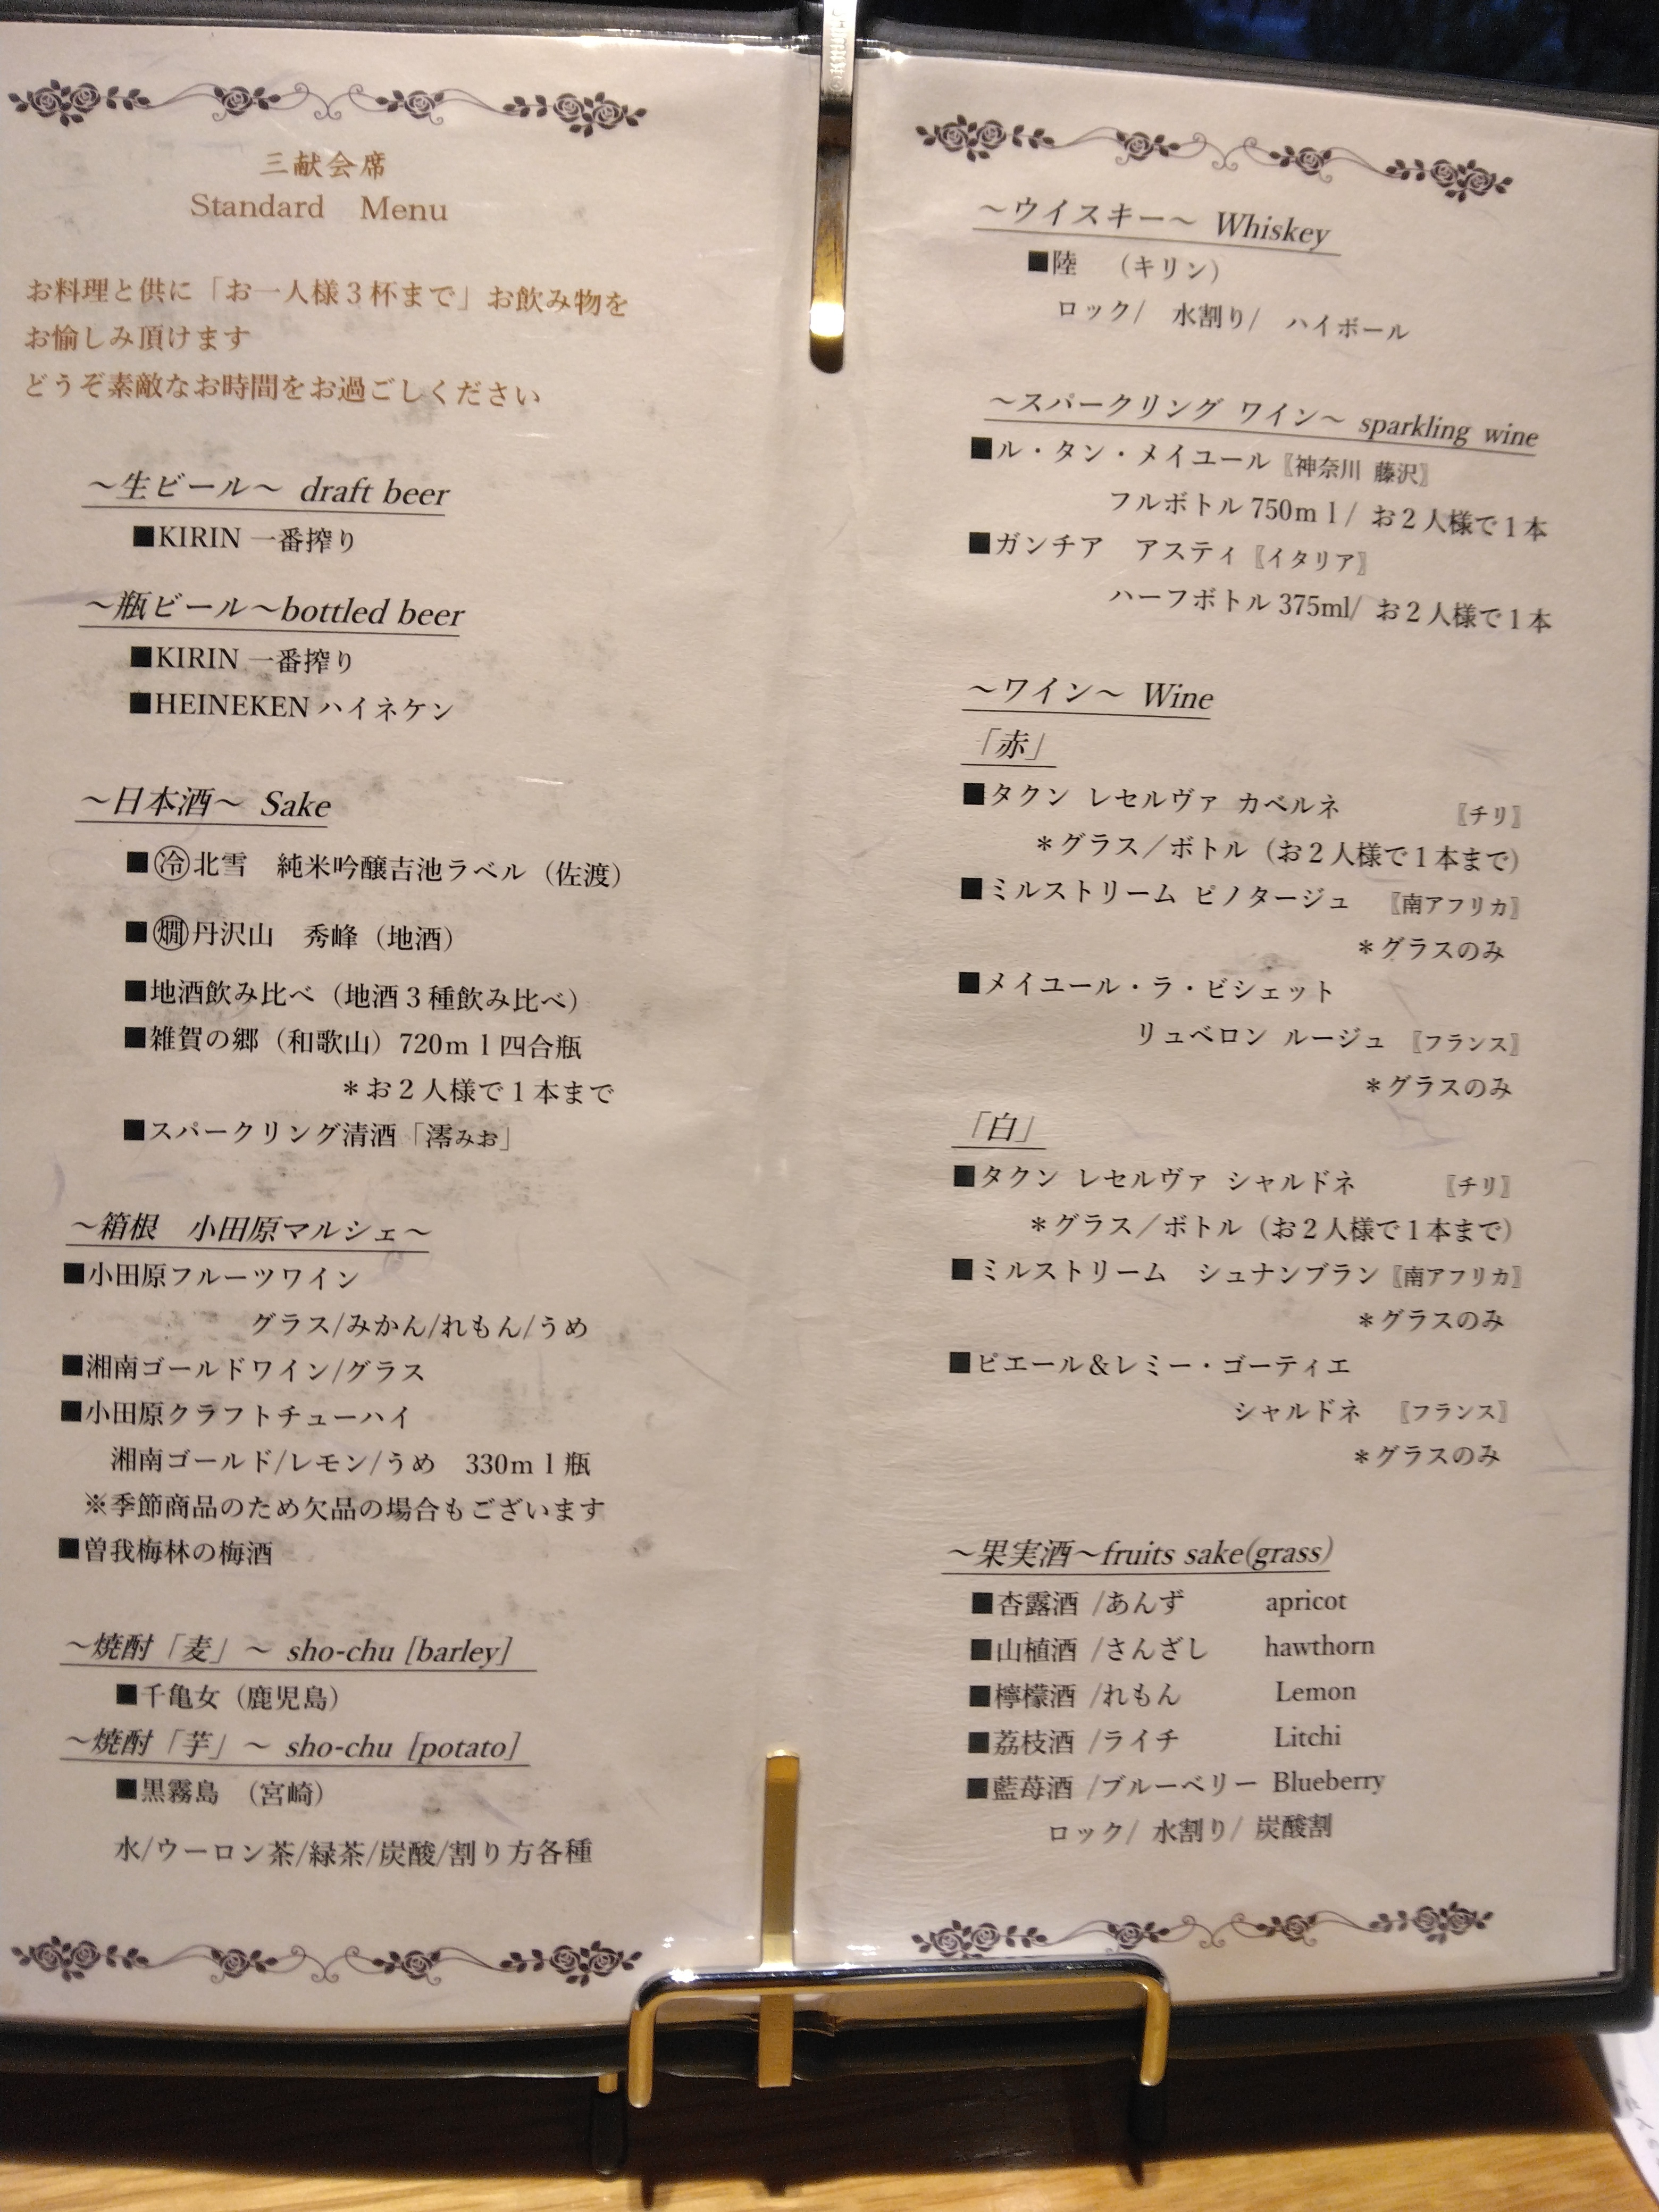 三献会席
Standard Menu
お料理と供に「お一人様３杯まで」お飲み物を
お愉しみ頂けます
どうぞ素敵なお時間をお過ごしください
～生ビール～ draft beer
■KIRIN 一番搾り
～瓶ビール～bottled beer
■KIRIN 一番搾り
■HEINEKEN ハイネケン
～日本酒～ Sake
■㊗冷北雪 純米吟醸吉池ラベル（佐渡）
■燗丹沢山 秀峰（地酒）
■地酒飲み比べ（地酒３種飲み比べ）
■雑賀の郷（和歌山）720ｍｌ四合瓶
＊お２人様で１本まで
■スパークリング清酒「澪みお」
～箱根 小田原マルシェ～
■小田原フルーツワイン
グラス/みかん/れもん/うめ
■湘南ゴールドワイン/グラス
■小田原クラフトチューハイ
湘南ゴールド/レモン/うめ 330ｍｌ瓶
※季節商品のため欠品の場合もございます
■曽我梅林の梅酒
～焼酎「麦」～ sho-chu [barley]
■千亀女（鹿児島）
～焼酎「芋」～ sho-chu [potato]
■黒霧島 （宮崎）
水/ウーロン茶/緑茶/炭酸/割り方各種
～ウイスキー～ Whiskey
■陸 （キリン）
ロック/ 水割り/ ハイボール
～スパークリング ワイン～ sparkling wine
■ル・タン・メイユール〖神奈川 藤沢〗
フルボトル 750ｍｌ/ お２人様で１本
■ガンチア アスティ〖イタリア〗
ハーフボトル 375ml/ お２人様で１本
～ワイン～ Wine
「赤」
■タクン レセルヴァ カベルネ 〖チリ〗
＊グラス／ボトル（お２人様で１本まで）
■ミルストリーム ピノタージュ 〖南アフリカ〗
＊グラスのみ
■メイユール・ラ・ビシェット
リュベロン ルージュ 〖フランス〗
＊グラスのみ
「白」
■タクン レセルヴァ シャルドネ 〖チリ〗
＊グラス／ボトル（お２人様で１本まで）
■ミルストリーム シュナンブラン〖南アフリカ〗
＊グラスのみ
■ピエール＆レミー・ゴーティエ
シャルドネ 〖フランス〗
＊グラスのみ
～果実酒～fruits sake(grass)
■杏露酒 /あんず apricot
■山植酒 /さんざし hawthorn
■檸檬酒 /れもん Lemon
■荔枝酒 /ライチ Litchi
■藍苺酒 /ブルーベリー Blueberry
ロック/ 水割り/ 炭酸割